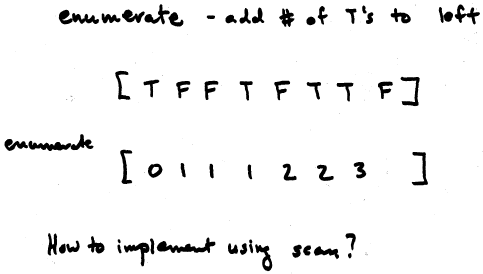 enumerate - add # of T's to left
[ T F F T F T T F ]
enumerate
[ 0 1 1 1 2 2 3 ]
How to implement using scan?